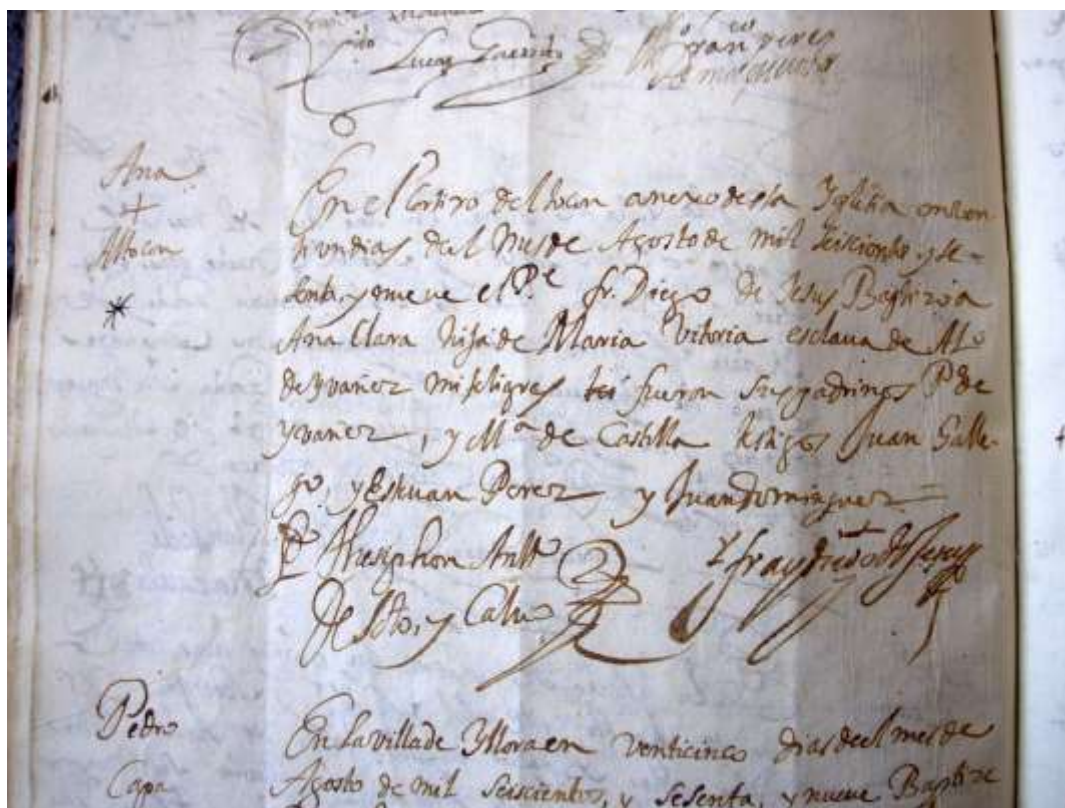 Lucas Garrido
Juan Perez
Ana
+
Allocon
En el Cortixo del locon anexo de sta Yglesia
dias del Mes de Agosto de mil seiscientos, y se-
senta, y nueve el Pe. fr. Diego de Jesus Baptizo a
Ana Clara hija de Maria Vitoria esclava de Alo
de yvañez mi feligres fueron sus padrinos Po de
yvañez, y Ma de Castilla testigos Juan Galle-
go, y Estevan Perez y Juan Dominguez =
De Soto, y Calvo
fray diego de Jesus
Pedro
Capa
En la villa de Yllora en venticinco dias del mes de
Agosto de mil seiscientos, y sesenta, y nueve Baptize